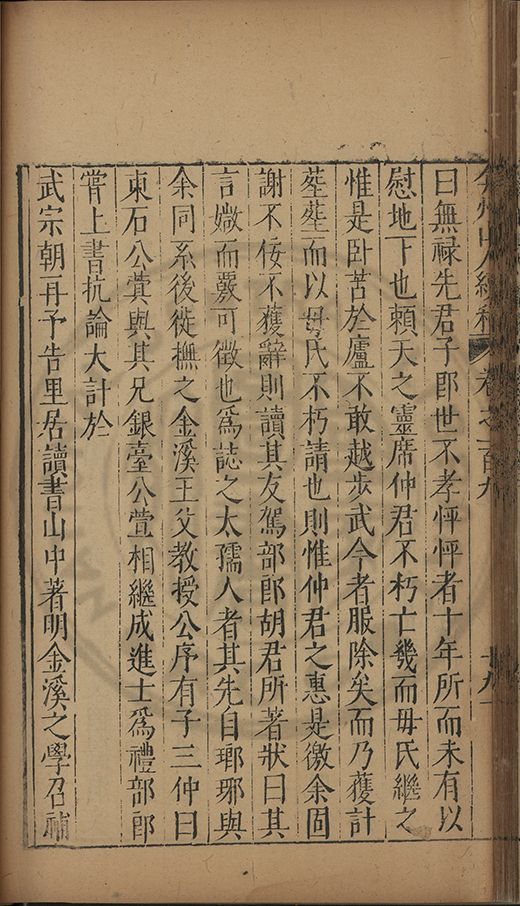 弇州山人續稿 卷之一百九 十九
曰無祿先君子郎世不孝怦怦者十年所而未有以
慰地下也賴天之靈席仲君不朽亡幾而毋氏繼之
惟是卧苫於廬不敢越步武今者服除矣而乃獲計
塟塟而以毋氏不朽請也則惟仲君之惠是徼余固
謝不佞不獲辭則讀其友駕部郎胡君所著狀曰其
言媺而覈可徵也爲誌之太孺人者其先自瑯琊與
余同系後徙撫之金溪王父教授公序有子三仲曰
東石公蓂與其兄銀臺公萱相繼成進士爲禮部郎
甞上書抗論大計於
武宗朝再予告里居讀書山中著明金溪之學召補